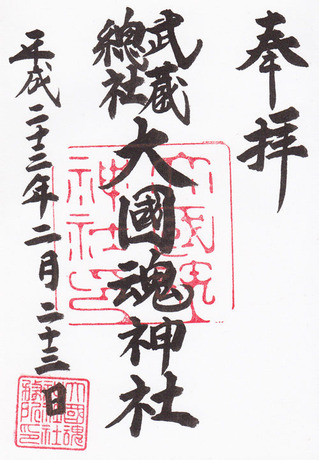 奉拝
武蔵
總社
大國魂神社
平成二十三年二月二十三日
大國魂
神社印
大國魂
神社社
務所印